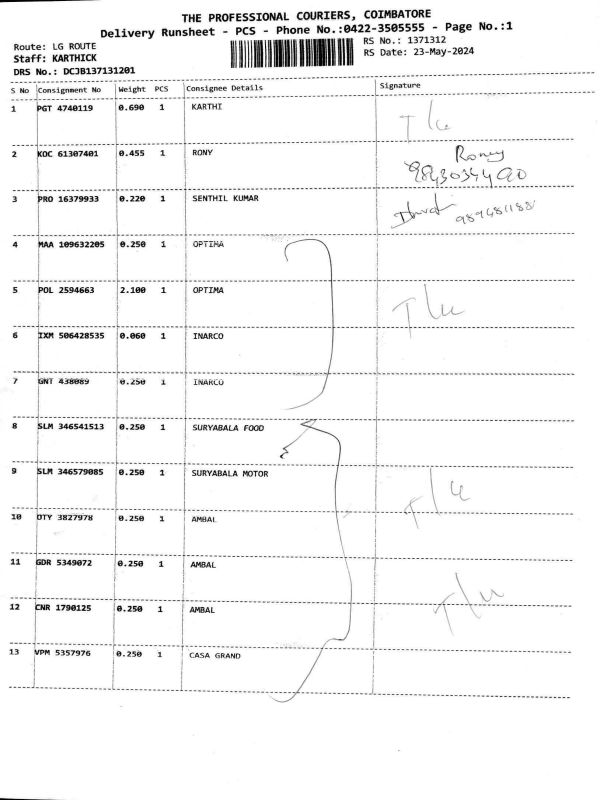 THE PROFESSIONAL COURIERS, COIMBATORE
Delivery Runsheet - PCS - Phone No.:0422-3505555 - Page No.:1
Route: LG ROUTE
RS No.: 1371312
Staff: KARTHICK
RS Date: 23-May-2024
DRS No.: DCJB137131201
S No Consignment No Weight PCS Consignee Details Signature
1 PGT 4740119 0.690 1 KARTHI
2 KOC 61307401 0.455 1 RONY Rony
3 PRO 16379933 0.220 1 SENTHIL KUMAR
4 MAA 109632205 0.250 1 OPTIMA
5 POL 2594663 2.100 1 OPTIMA
6 IXM 506428535 0.060 1 INARCO
7 GNT 438089 0.250 1 INARCO
8 SLM 346541513 0.250 1 SURYABALA FOOD
9 SLM 346579085 0.250 1 SURYABALA MOTOR
10 OTY 3827978 0.250 1 AMBAL
11 GDR 5349072 0.250 1 AMBAL
12 CNR 1790125 0.250 1 AMBAL
13 VPM 5357976 0.250 1 CASA GRAND